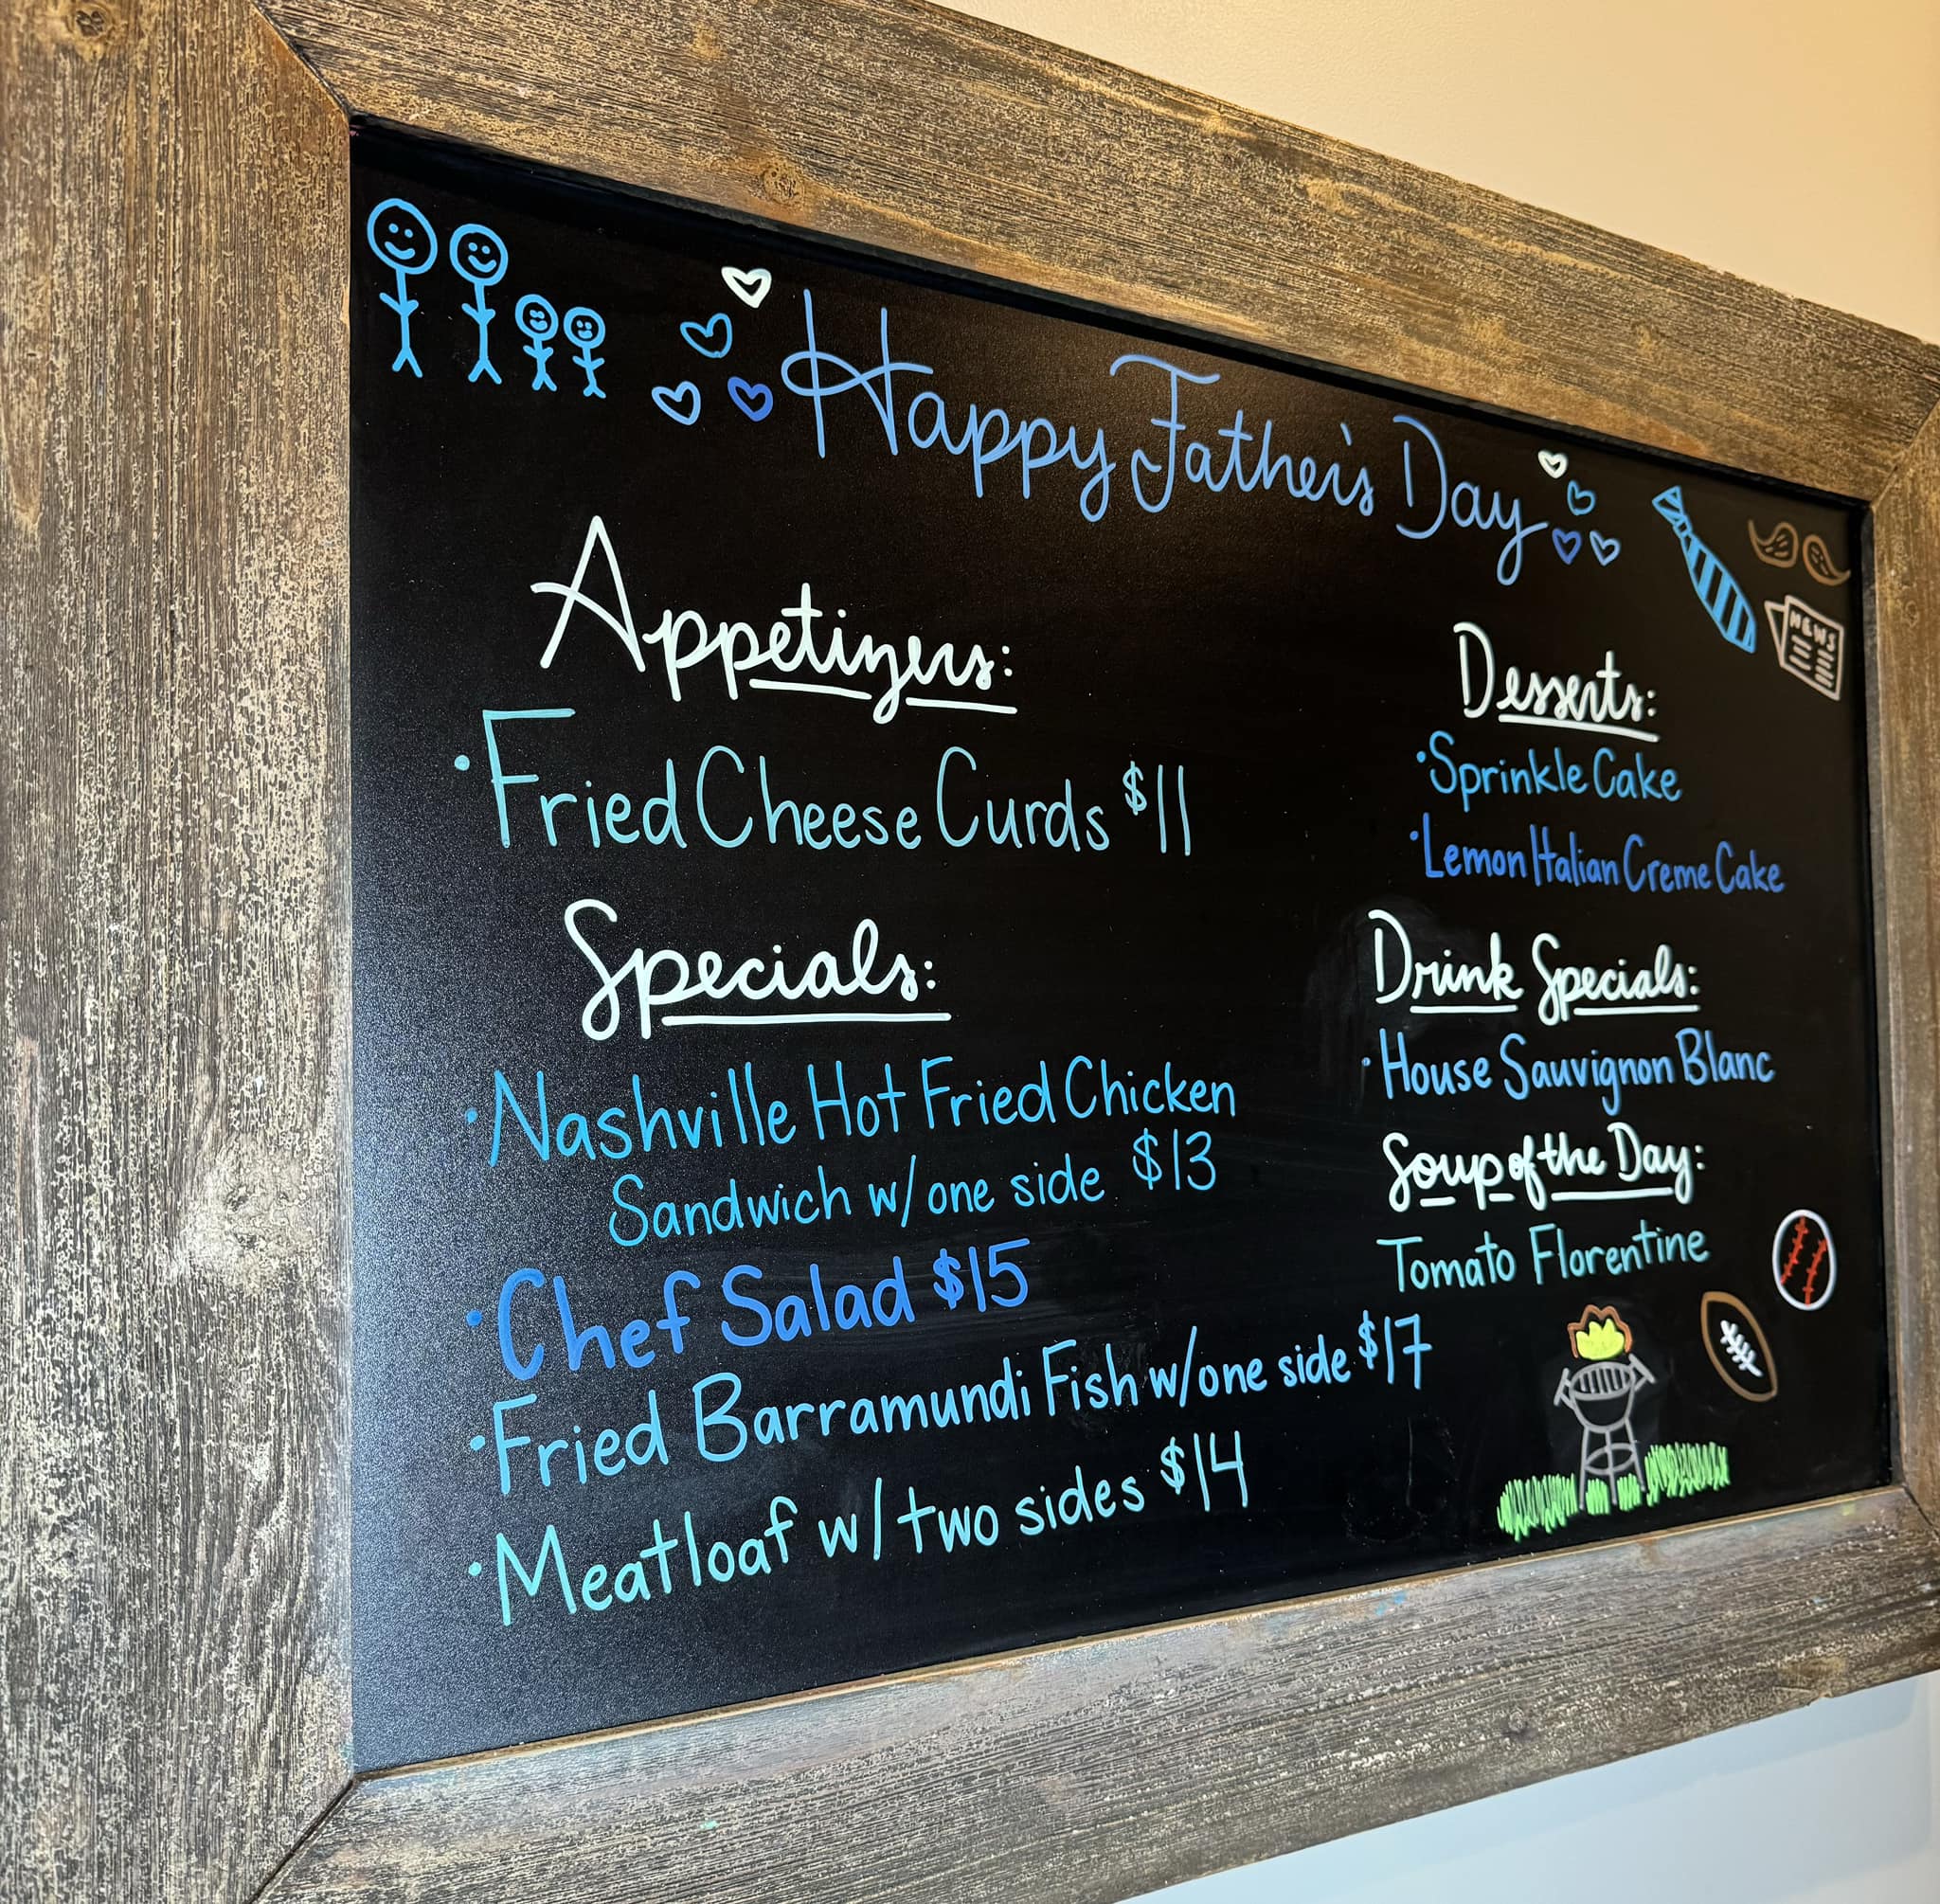 Happy Father's Day
Appetizers:
·Fried Cheese Curds $11
Specials:
·Nashville Hot Fried Chicken
Sandwich w/one side $13
·Chef Salad $15
·Fried Barramundi Fish w/one side $17
·Meatloaf w/two sides $14
NEWS
Desserts:
·Sprinkle Cake
·Lemon Italian Creme Cake
Drink Specials:
·House Sauvignon Blanc
Soup of the Day:
Tomato Florentine